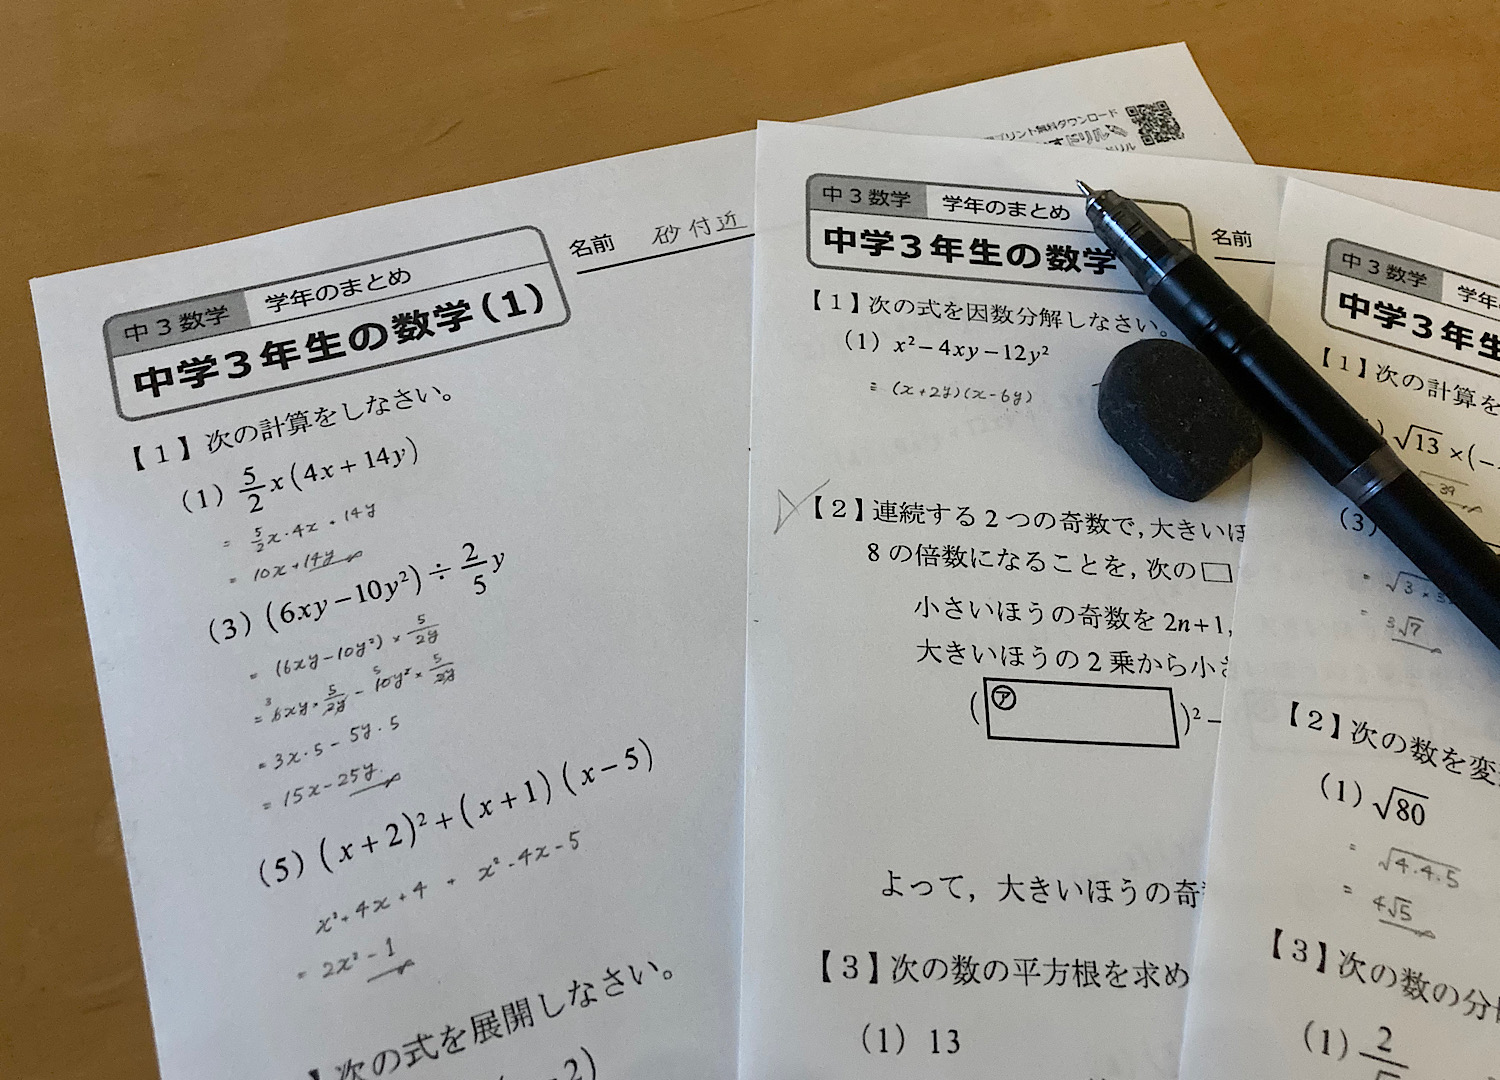 プリント無料ダウンロード
ドリル
中3数学 学年のまとめ
中学3年生の数学(1)
名前 砂付近
【1】次の計算をしなさい。
(1) 5/2 x(4x+14y)
= 5/2 x・4x+14y
= 10x+14y
(3) (6xy−10y²)÷2/5 y
= (6xy−10y²)×5/2y
= 6xy×5/2y − 10y²×5/2y
3 5
= 3x・5−5y・5
= 15x−25y
(5) (x+2)²+(x+1)(x−5)
x²+4x+4 + x²-4x-5
= 2x²-1
次の式を展開しなさい。
中3数学 学年のまとめ
中学3年生の数学
名前
【1】次の式を因数分解しなさい。
(1) x²−4xy−12y²
= (x+2y)(x-6y)
【2】連続する2つの奇数で,大きいほ
8の倍数になることを,次の□
小さいほうの奇数を2n+1,
大きいほうの2乗から小さ
(㋐ )²−
よって,大きいほうの奇
【3】次の数の平方根を求め
(1) 13
中3数学 学年
中学3年生
【1】次の計算を
√13×(−
-39
(3)
= √3×3
= 3√7
【2】次の数を変
(1) √80
= √4・4・5
= 4√5
【3】次の数の分
(1) 2